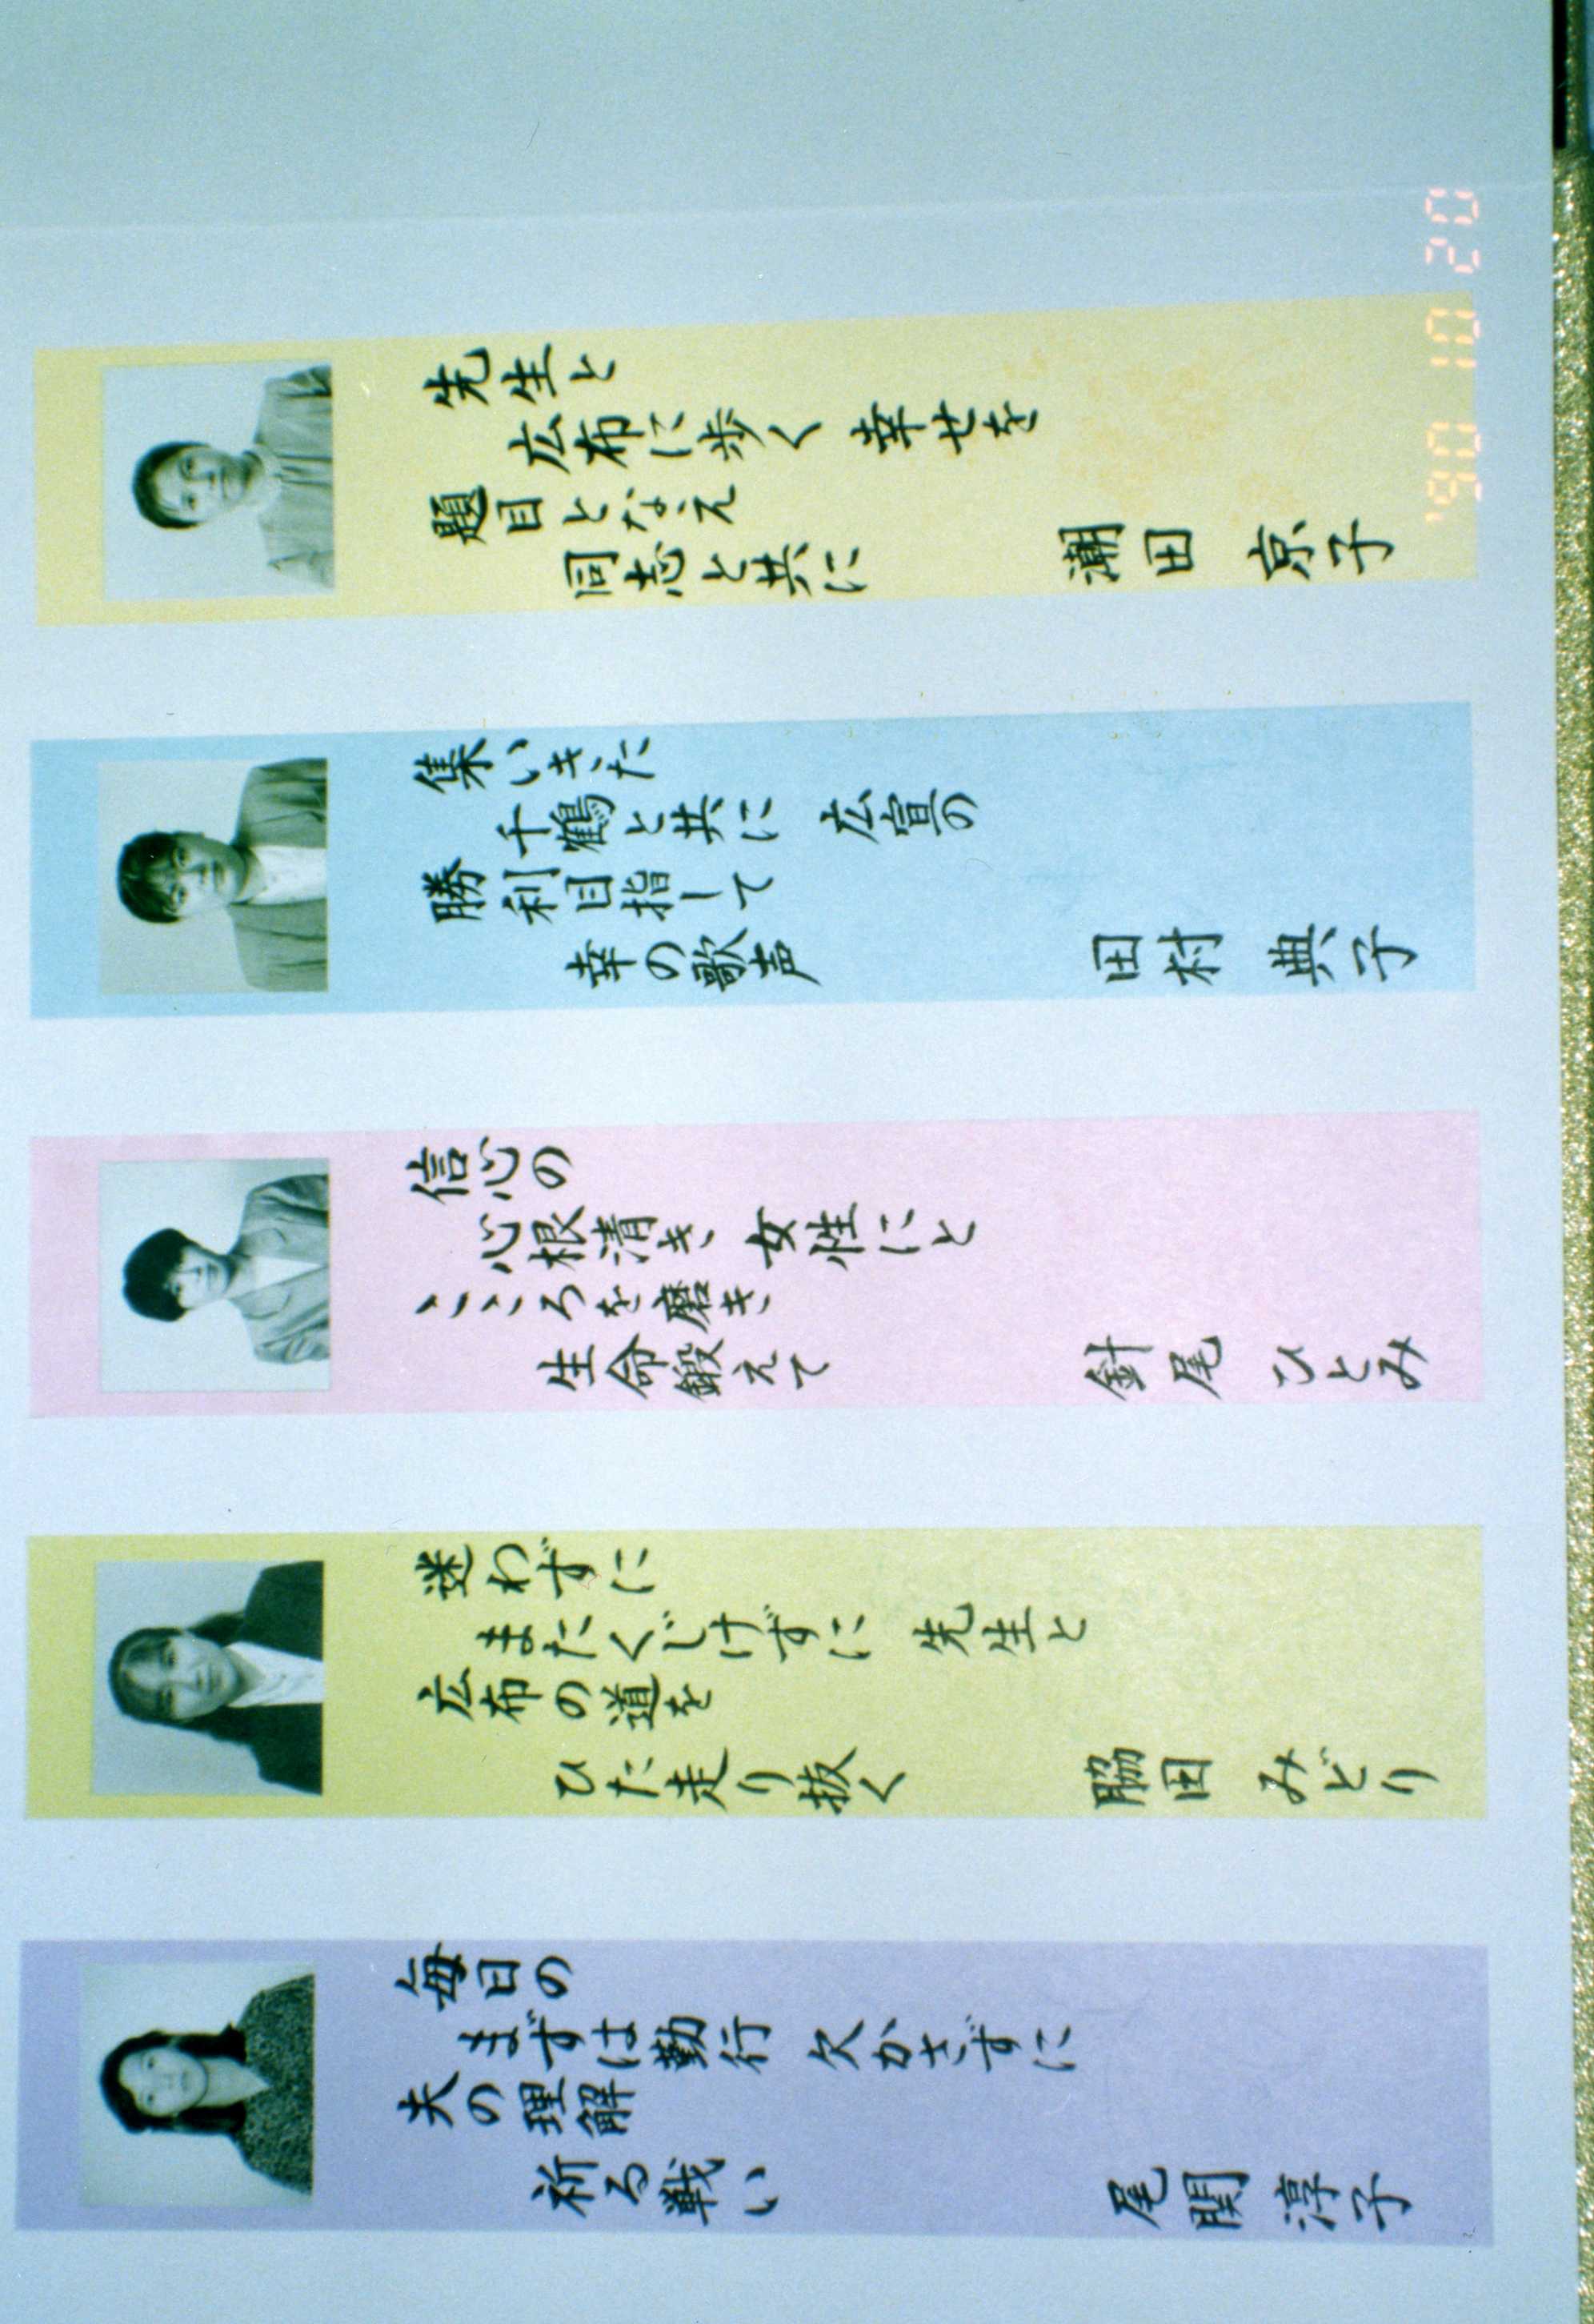 先生と
広布に歩く 幸せを
題目となえ
同志と共に
潮田 京子
集いきた
千鶴と共に 広宣の
勝利目指して
幸の歌声
田村 典子
信心の
心根清き 女性にと
こころを磨き
生命鍛えて
針尾 ひとみ
迷わずに
またくじけずに 先生と
広布の道を
ひた走り抜く
脇田 みどり
毎日の
まずは勤行 欠かさずに
夫の理解
祈る戦い
尾関 淳子
'90 10 20